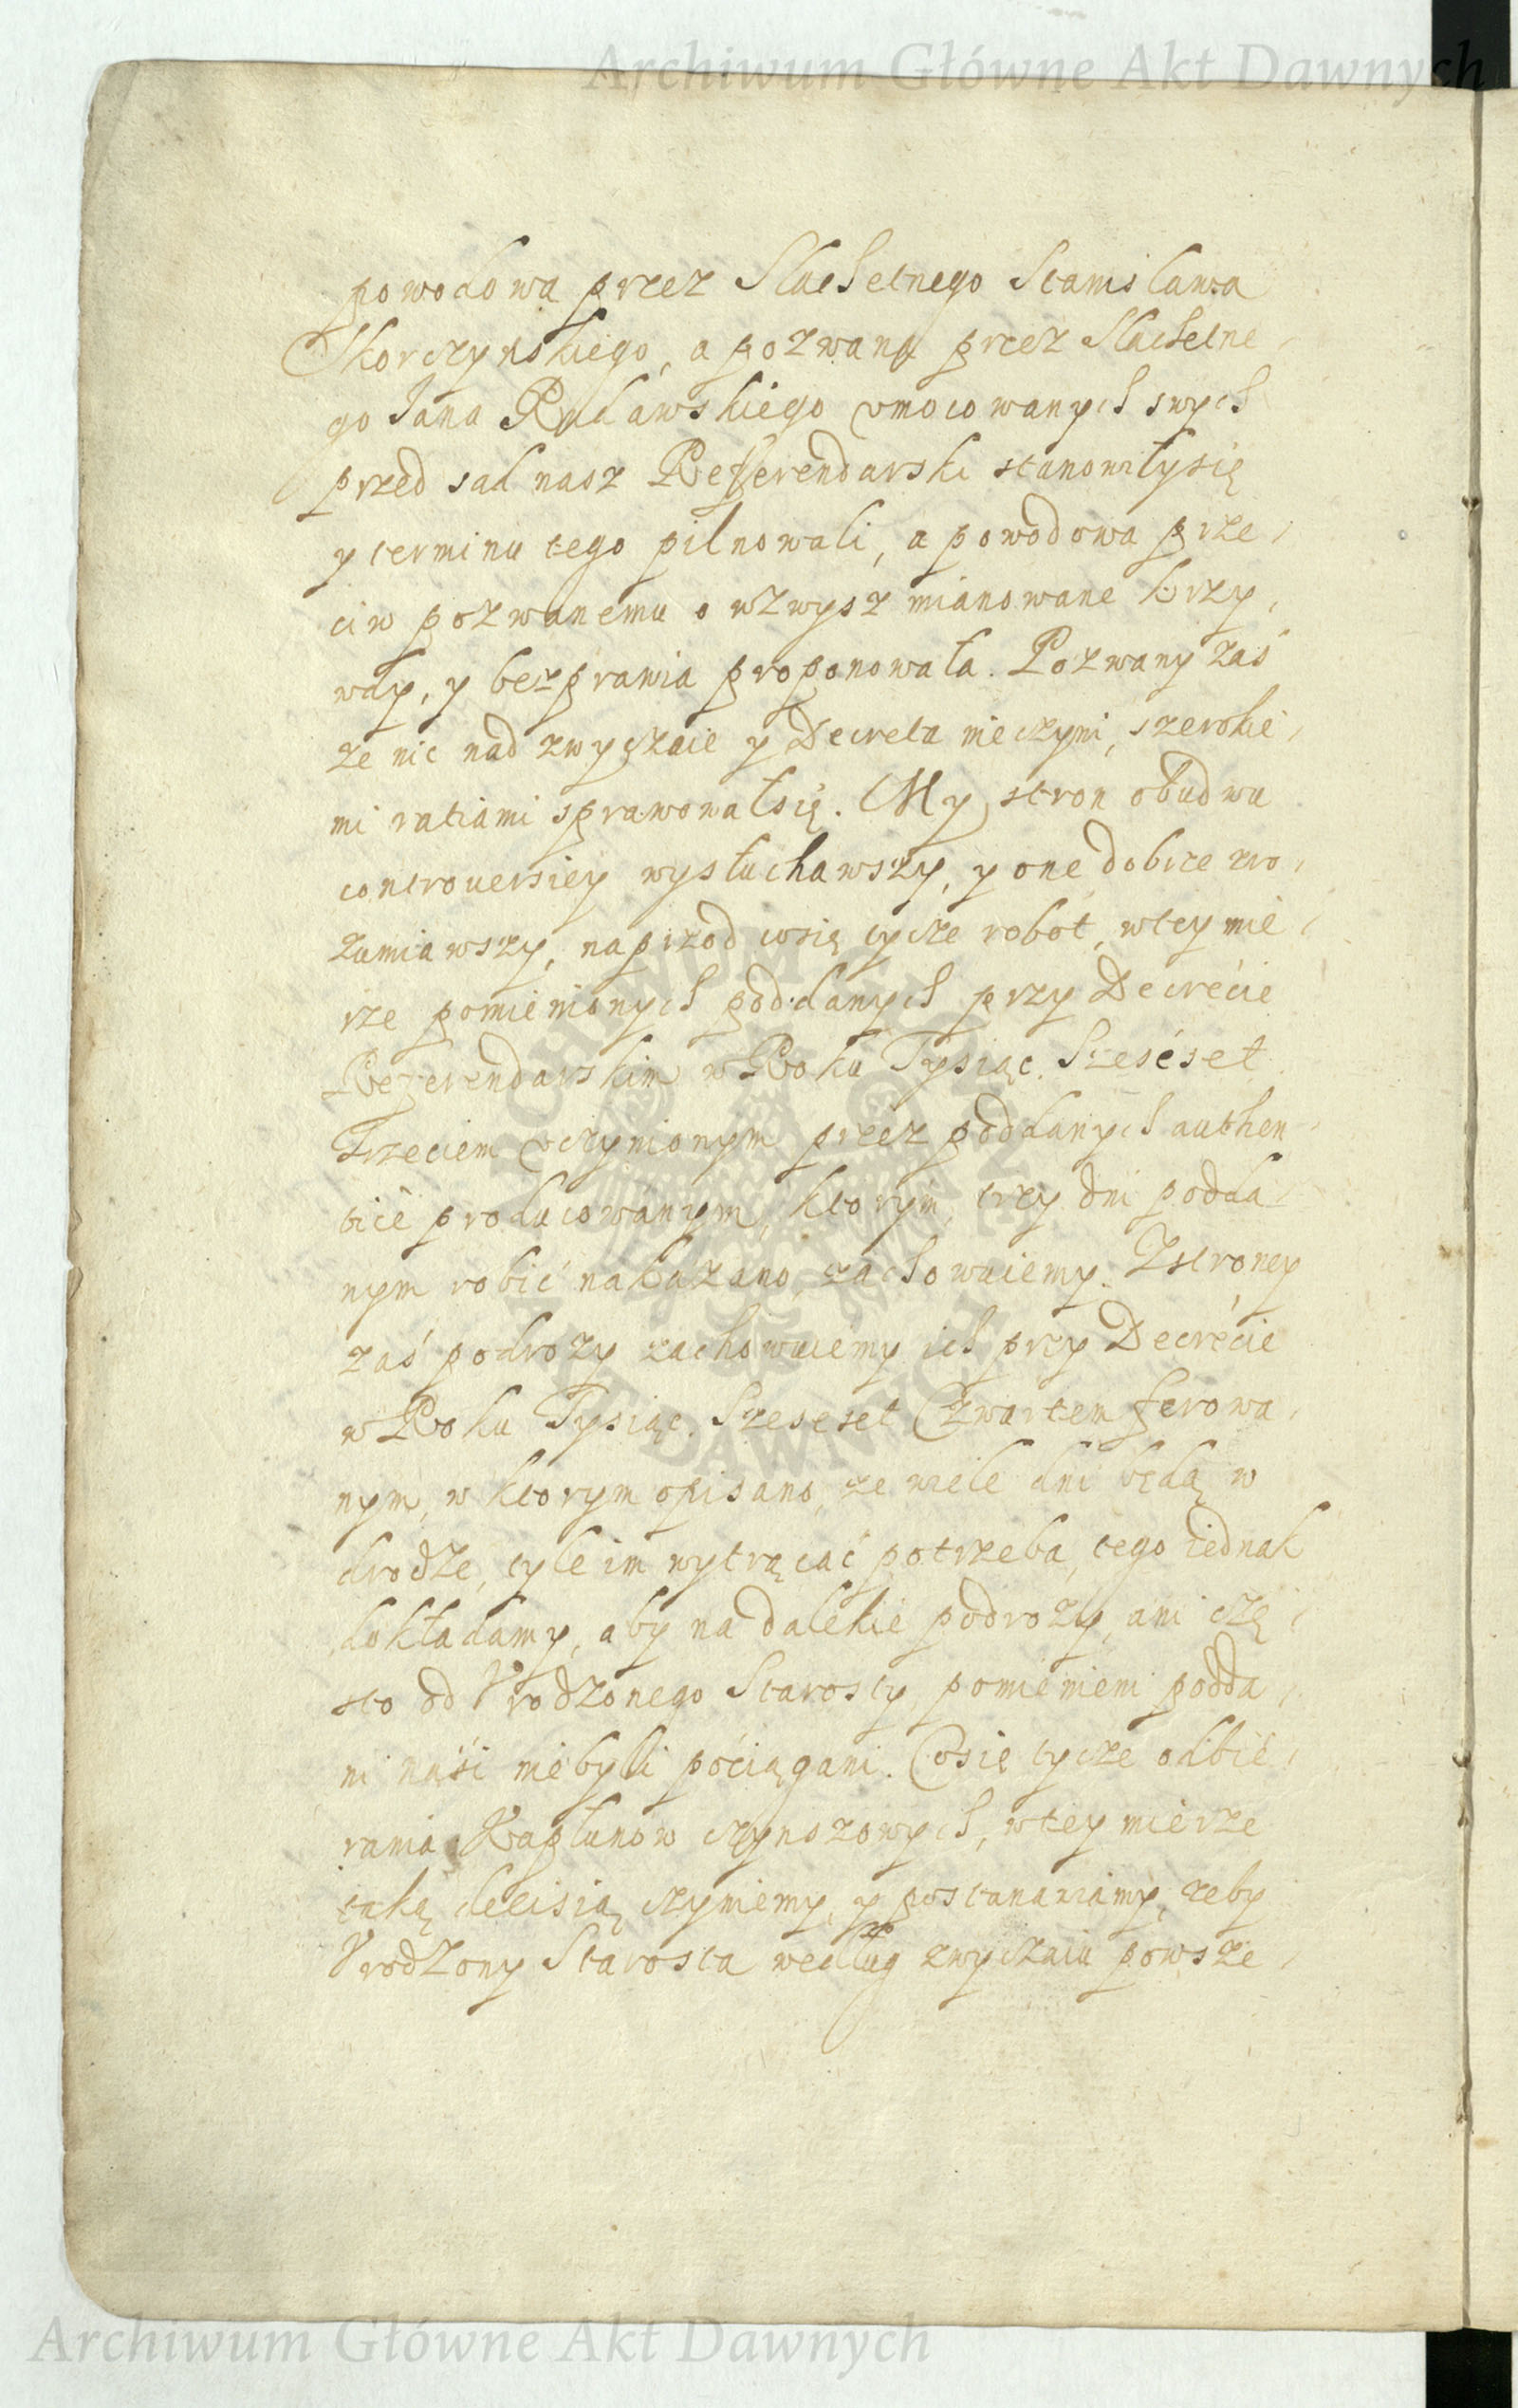 Archiwum Główne Akt Dawnych
powodowa przez Slachetnego Stanisława
Skorczynskiego, a pozwana przez Slachetne
go Jana Rudawskiego vmocowanych swych
przed sąd nasz Refferendarski stanowiłysię
y terminu tego pilnowali, a powodowa prze,
ciw pozwanemu o wzwysz mianowane krzy,
wdy, y bezprawia proponowała. Pozwany zaś
ze nic nad zwyczaie y Decreta nieczyni, szeroke,
mi ratiami sprawowałsię. My stron obudwu
controuersiey wysłuchawszy, y one dobrze zro,
zumiawszy, naprzod cosię tycze robot, wtey mie,
rze pomienionych poddanych przy Decrecie
Referendarskim w Roku Tysiąc Szesćset
Trzeciem vczynionym przez poddanych authen
tice producowanym, ktorym trzy dni podda
nym robić nakazano, zachowuiemy. Zstroney
zaś podrozy zachowuiemy ich przy Decrecie
w Roku Tysiąc Szesćset Czwartem ferowa,
nym, w ktorym opisano, ze wiele dni będą w
drodze, tyle im wytrącać potrzeba, tego iednak
dokładamy, aby na dalekie podrozy, ani czę,
sto od Vrodzonego Starosty pomienieni podda,
ni nasi niebyli pociągani. Cosię tycze odbie,
rania Kapłunow czynszowych, wtey mierze
taką decisią czyniemy, y postanawiamy, zeby
Vrodzony Starosta według zwyczaiu powsze,
ARCHIWUM GŁÓWNE AKT DAWNYCH
Archiwum Główne Akt Dawnych